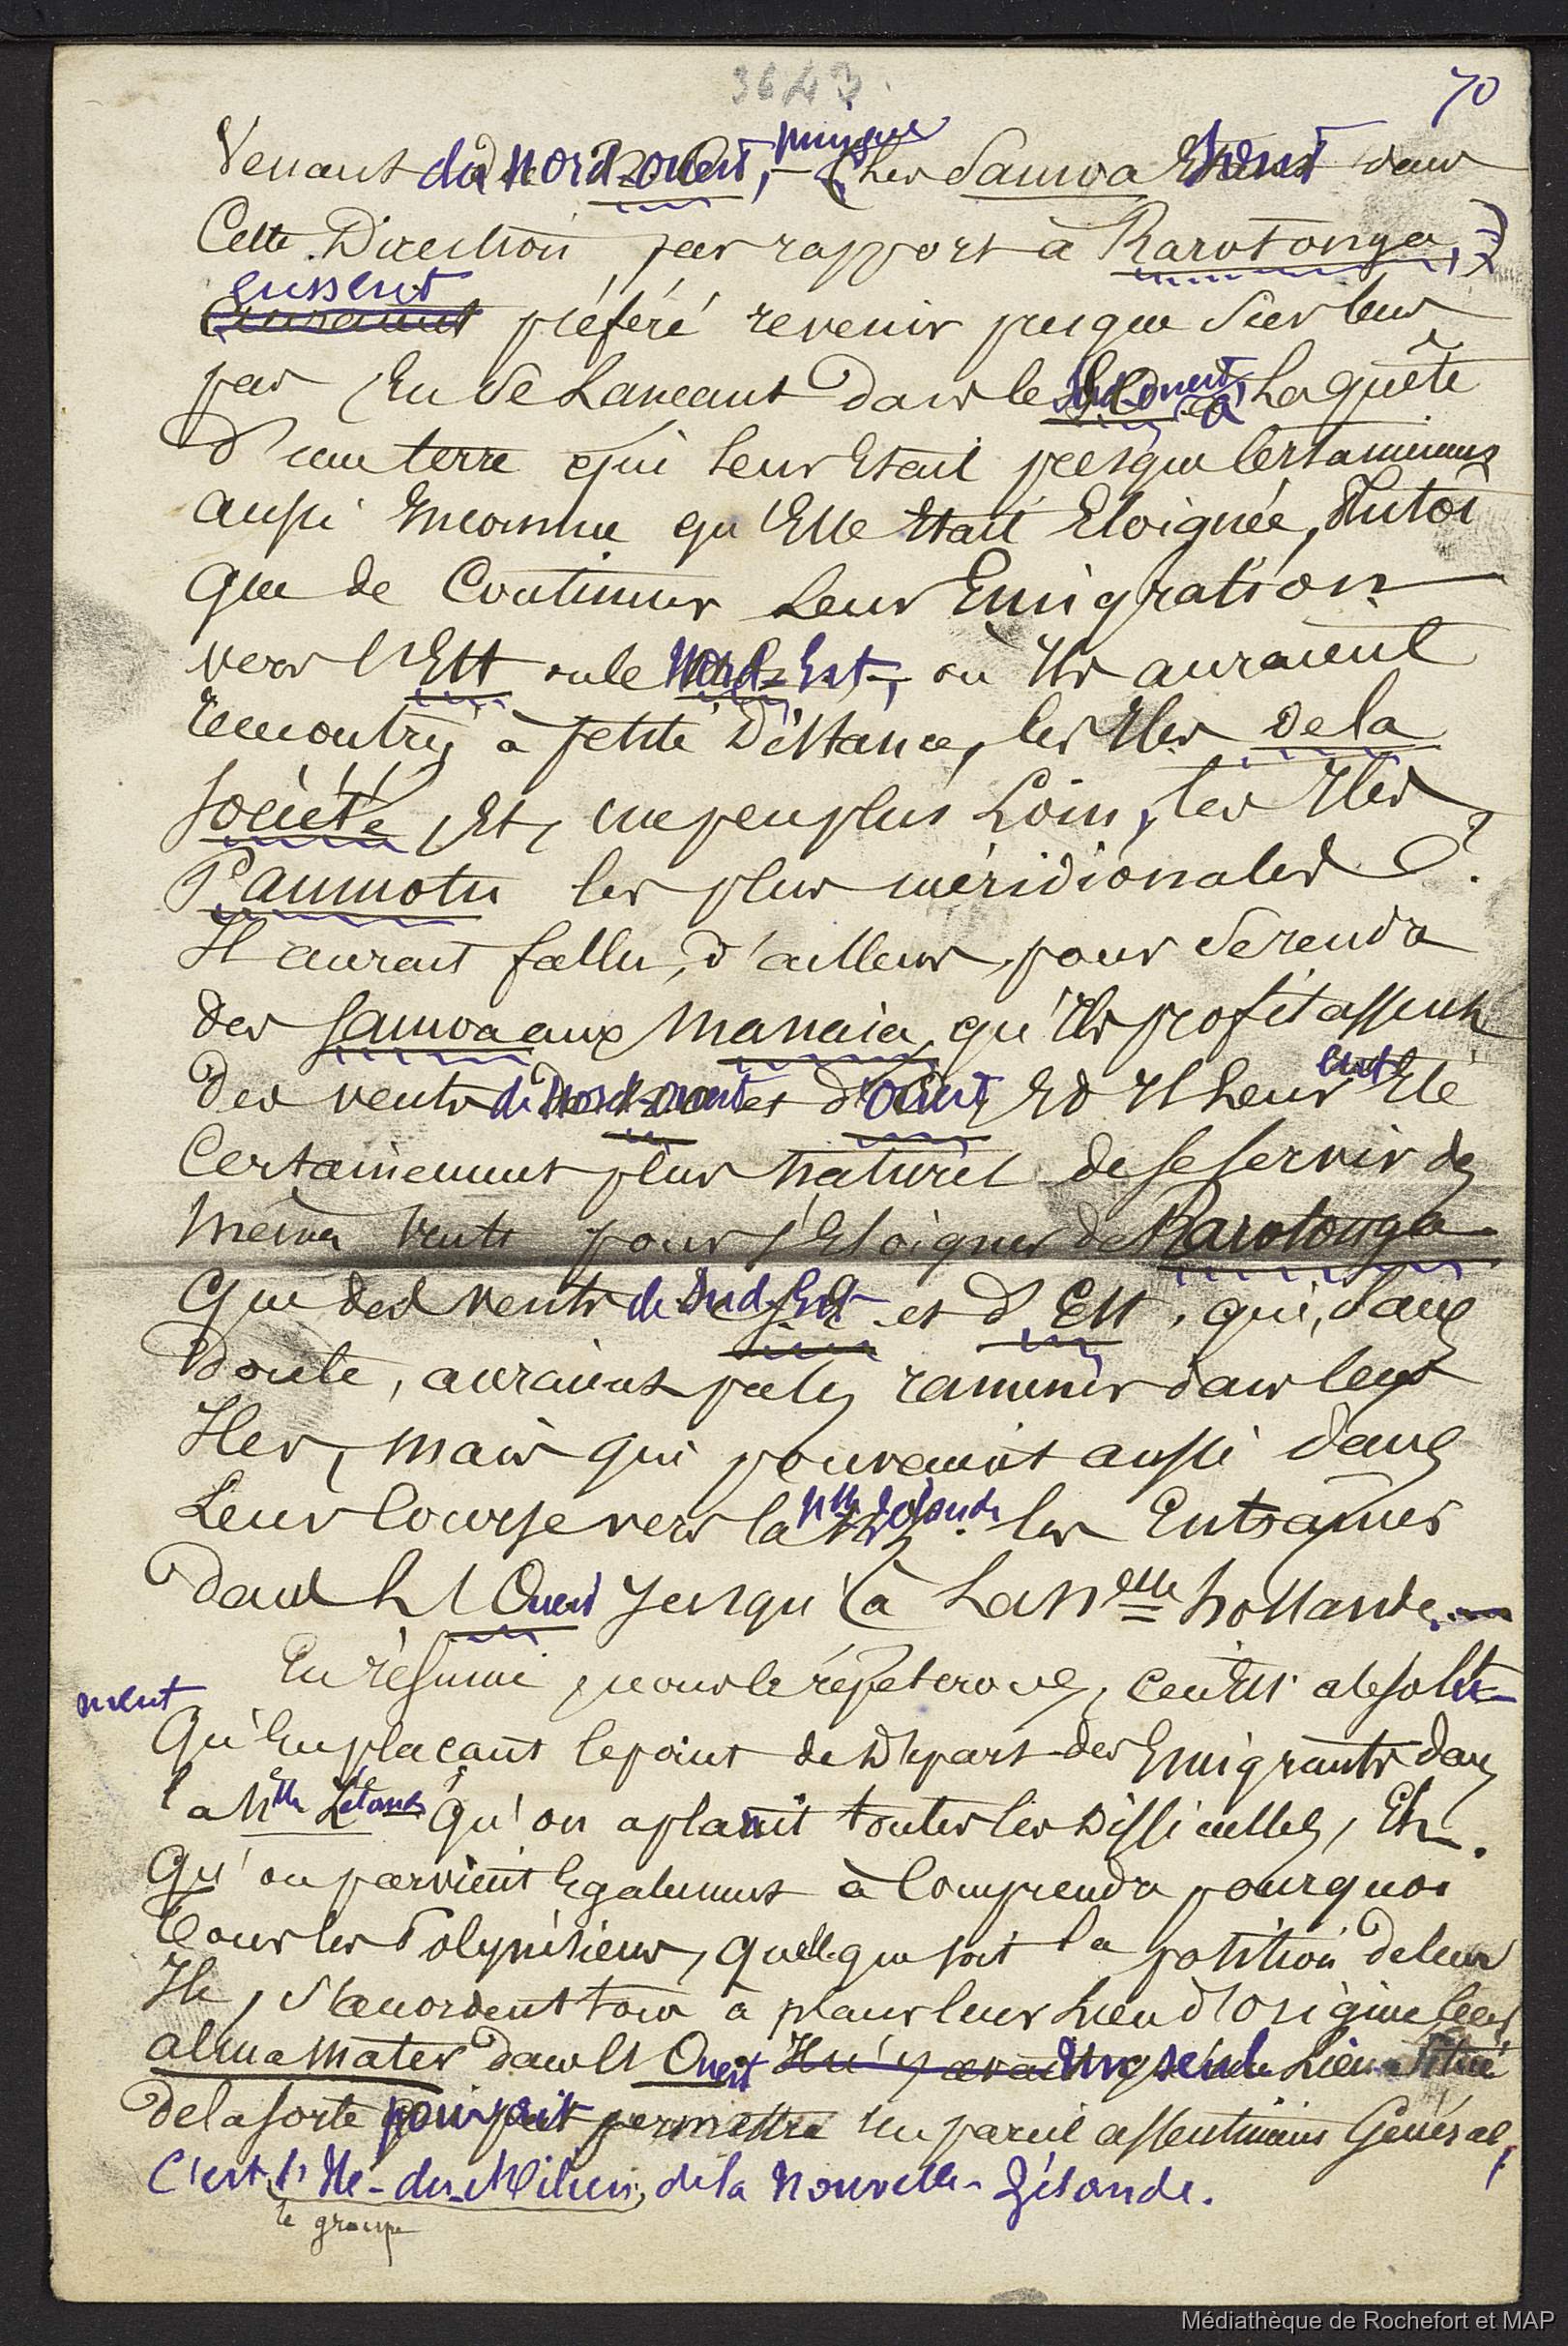 3643
70
Venant du Nord-ouest, puisque les Samoa étaient dans
Cette Direction par rapport à Rarotonga,)
eussent
préféré revenir presque sur leurs
pas En se Lançant dans le Sud-ouest, à La quête
D'une terre qui leur Etait presque Certainement
aussi Inconnue qu'Elle Etait Eloignée, Plutôt
que de Continuer Leur Emigration
vers l'Est ou le Nord-Est, où Ils auraient
rencontré, à petite Distance, les Iles de la
Société, Et, un peu plus Loin, les Iles
Paumotu les plus méridionales ?.
Il aurait fallu, d'ailleurs, pour Se rendre
des Samoa aux Manaia, qu'Ils profitassent
Des vents de Nord-ouest et d'ouest, Et Il Leur eut Eté
Certainement plus naturel de se servir des
mêmes vents pour s'Eloigner de Rarotonga
Que des vents de Sud-Est et d'Est, qui, Sans
Doute, auraient pu les ramener dans leurs
Iles, mais qui pouvaient aussi dans
Leur Course vers la Nlle Zélande les Entraîner
Dans l'Ouest Jusqu'à La Nelle hollande.
En résumé, nous le répéterons, Ce n'Est absolu-
ment
Qu'En plaçant le point de Départ des Emigrants dans
la Nlle Zélande qu'on aplanit toutes les Difficultés, Et
Qu'on parvient Egalement à Comprendre pourquoi
Tous les Polynésiens, quelle que soit la position de leur
Ile, S'accordent tous à placer leur Lieu d'Origine, leur
alma mater dans l'Ouest Il n'y avait Un seul Lieu Situé
De la sorte pouvait permettre un pareil assentiment Général,
C'est l'Ile-du-Milieu, de la Nouvelle-Zélande.
le groupe
Médiathèque de Rochefort et MAP